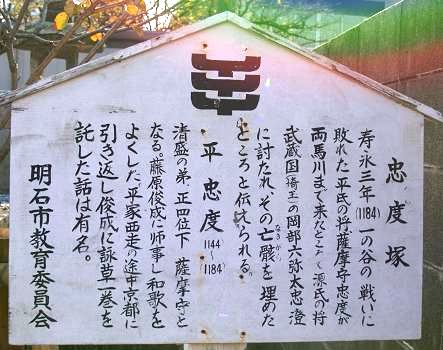 忠度塚
寿永三年(1184)一の谷の戦いに
敗れた平氏の将薩摩守忠度が
両馬川まで来たところで源氏の将
武蔵国(埼玉)の岡部六弥太忠澄
に討たれ、その亡骸を埋めた
ところと伝えられる。
平忠度 1144〜1184
清盛の弟、正四位下 薩摩守と
なる。藤原俊成に師事し和歌を
よくした。平家西走の途中京都に
引き返し俊成に詠草一巻を
託した話は有名。
明石市教育委員会